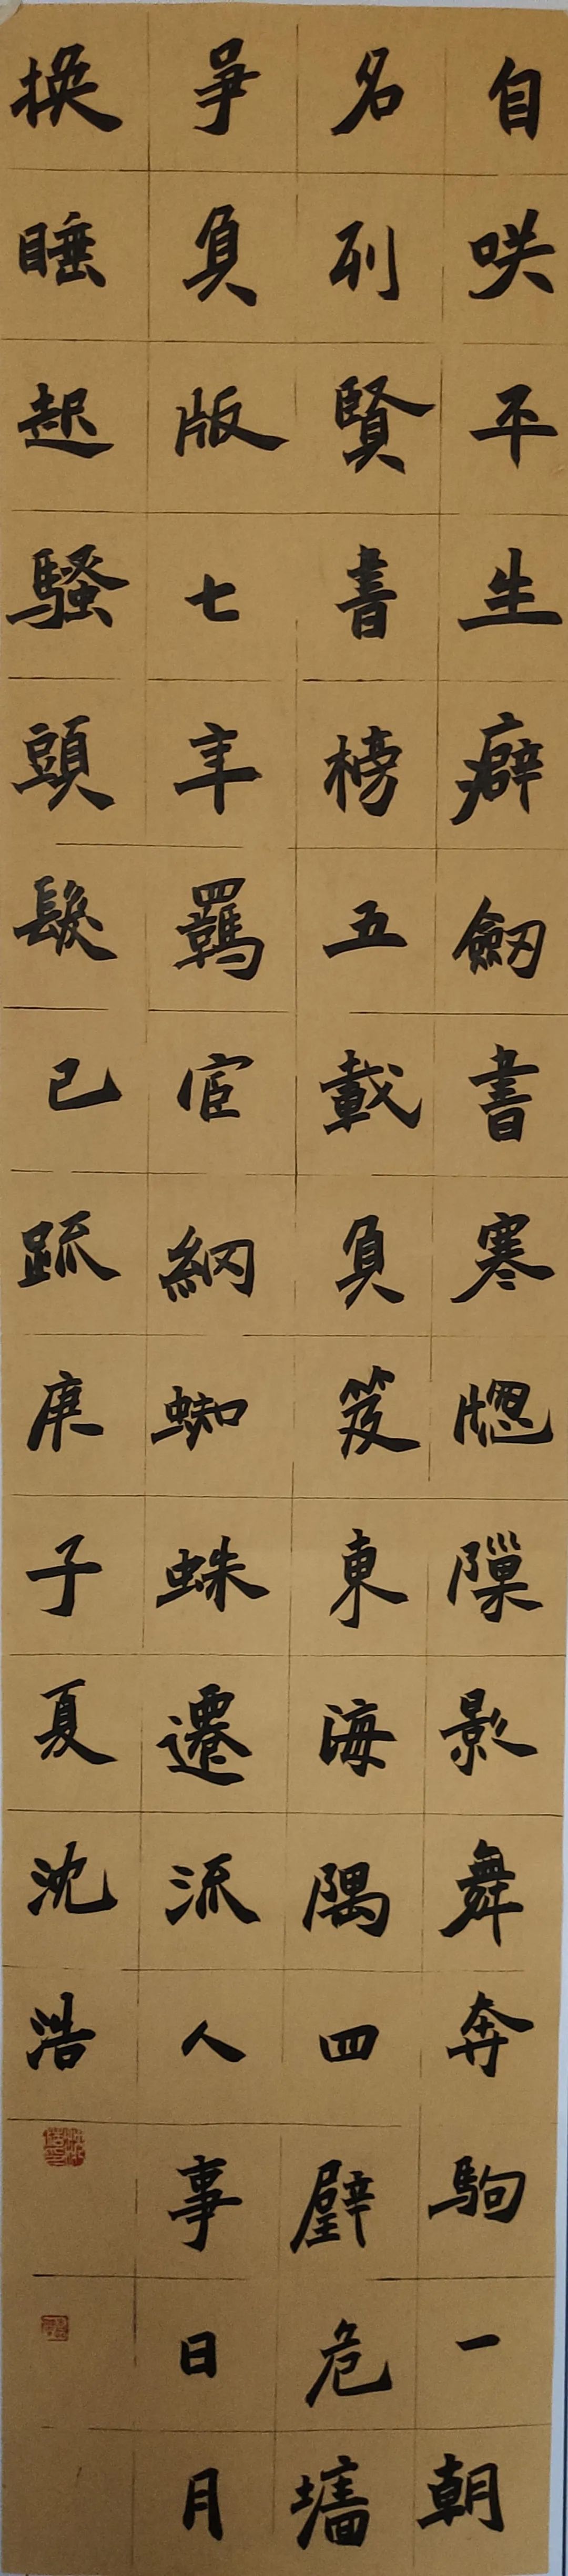 自咲平生癖劒書寒牎隟影舞奔駒一朝
名列賢書榜五載負笈東海隅四壁危墻
爭負版七年羈宦網蜘蛛遷流人事日月
換睡起騷頭髮已疏庚子夏沈浩